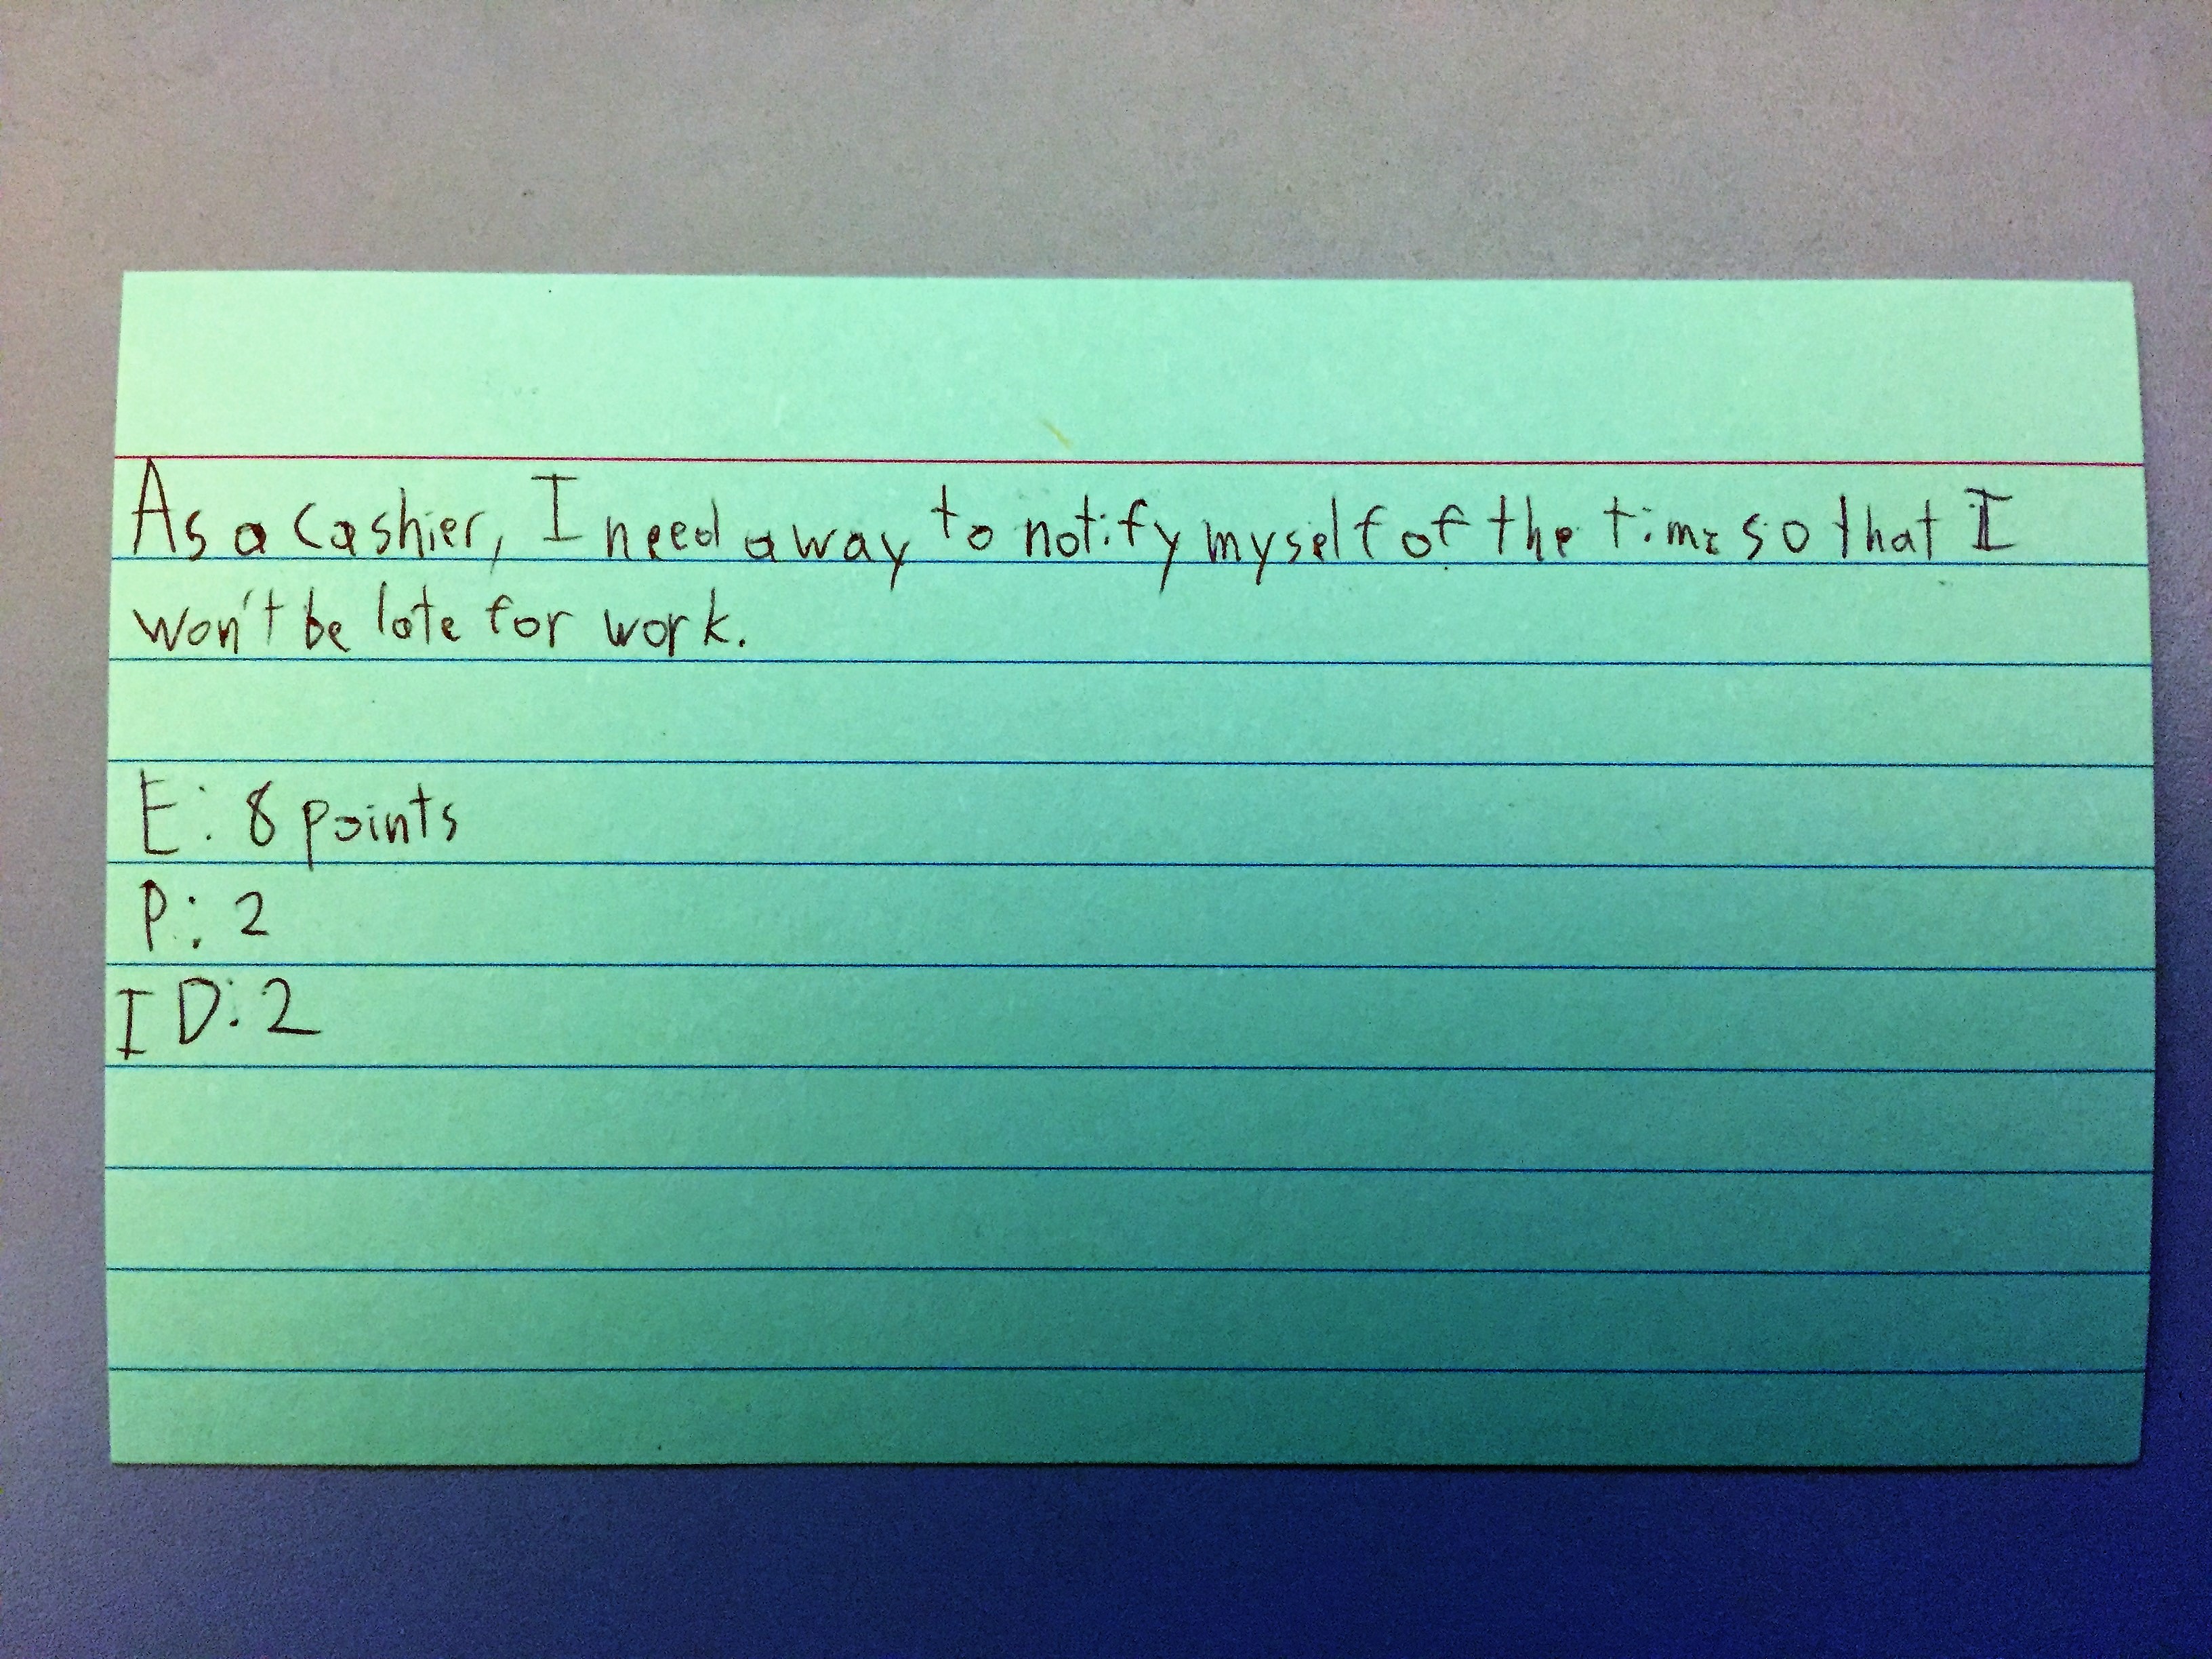 As a cashier, I need a way to notify myself of the time so that I
won't be late for work.
E: 8 points
P: 2
ID: 2